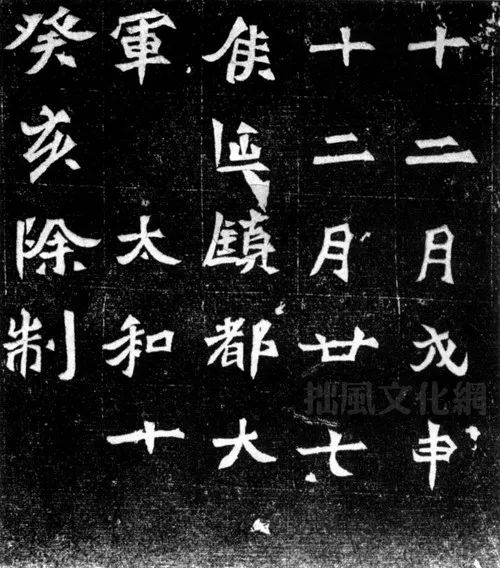 十二月戊申
十二月廿七
侯延鎮都大
軍　太和十
癸亥除制
拙風文化網